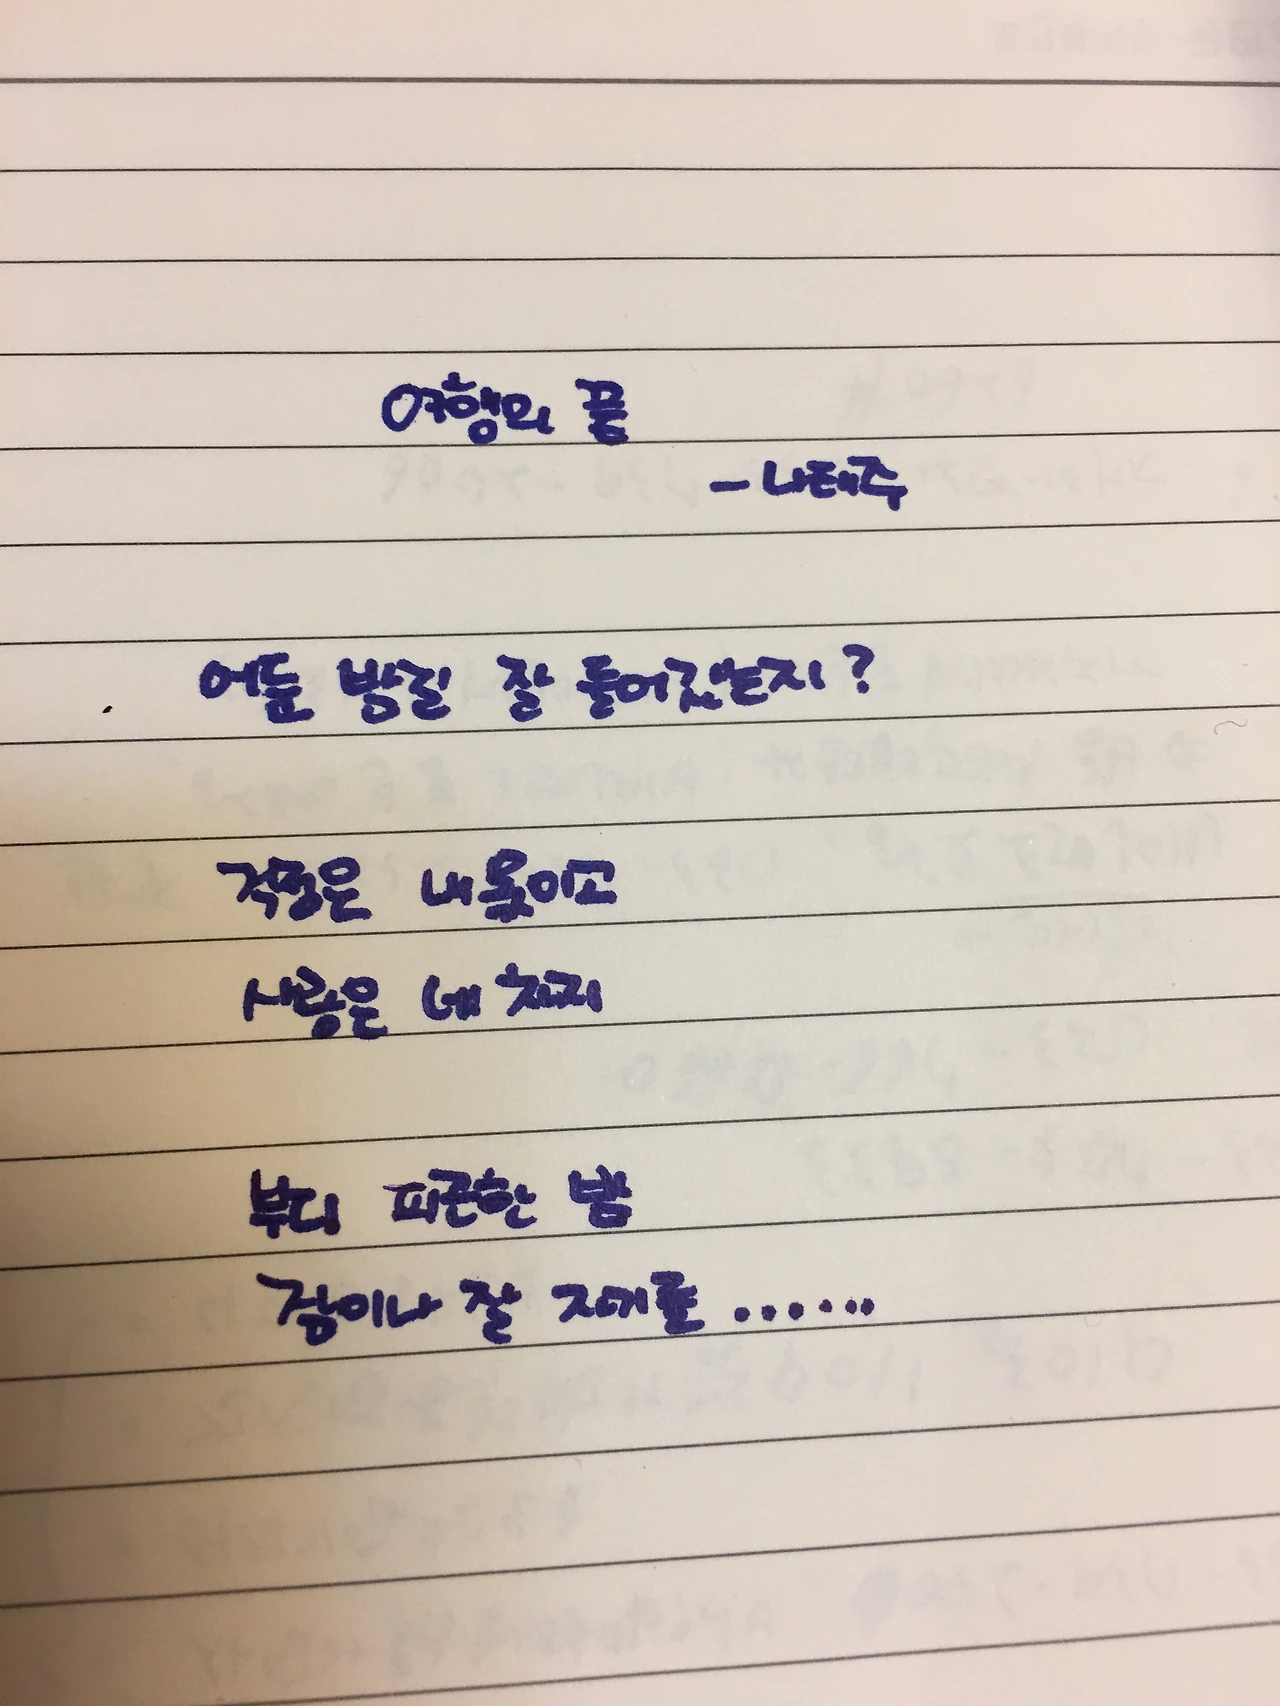 여행의 끝
- 나태주
어둔 밤길 잘 들어갔는지?
걱정은 내 몫이고
사랑은 네 차지
부디 피곤한 밤
잠이나 잘 자기를 ......